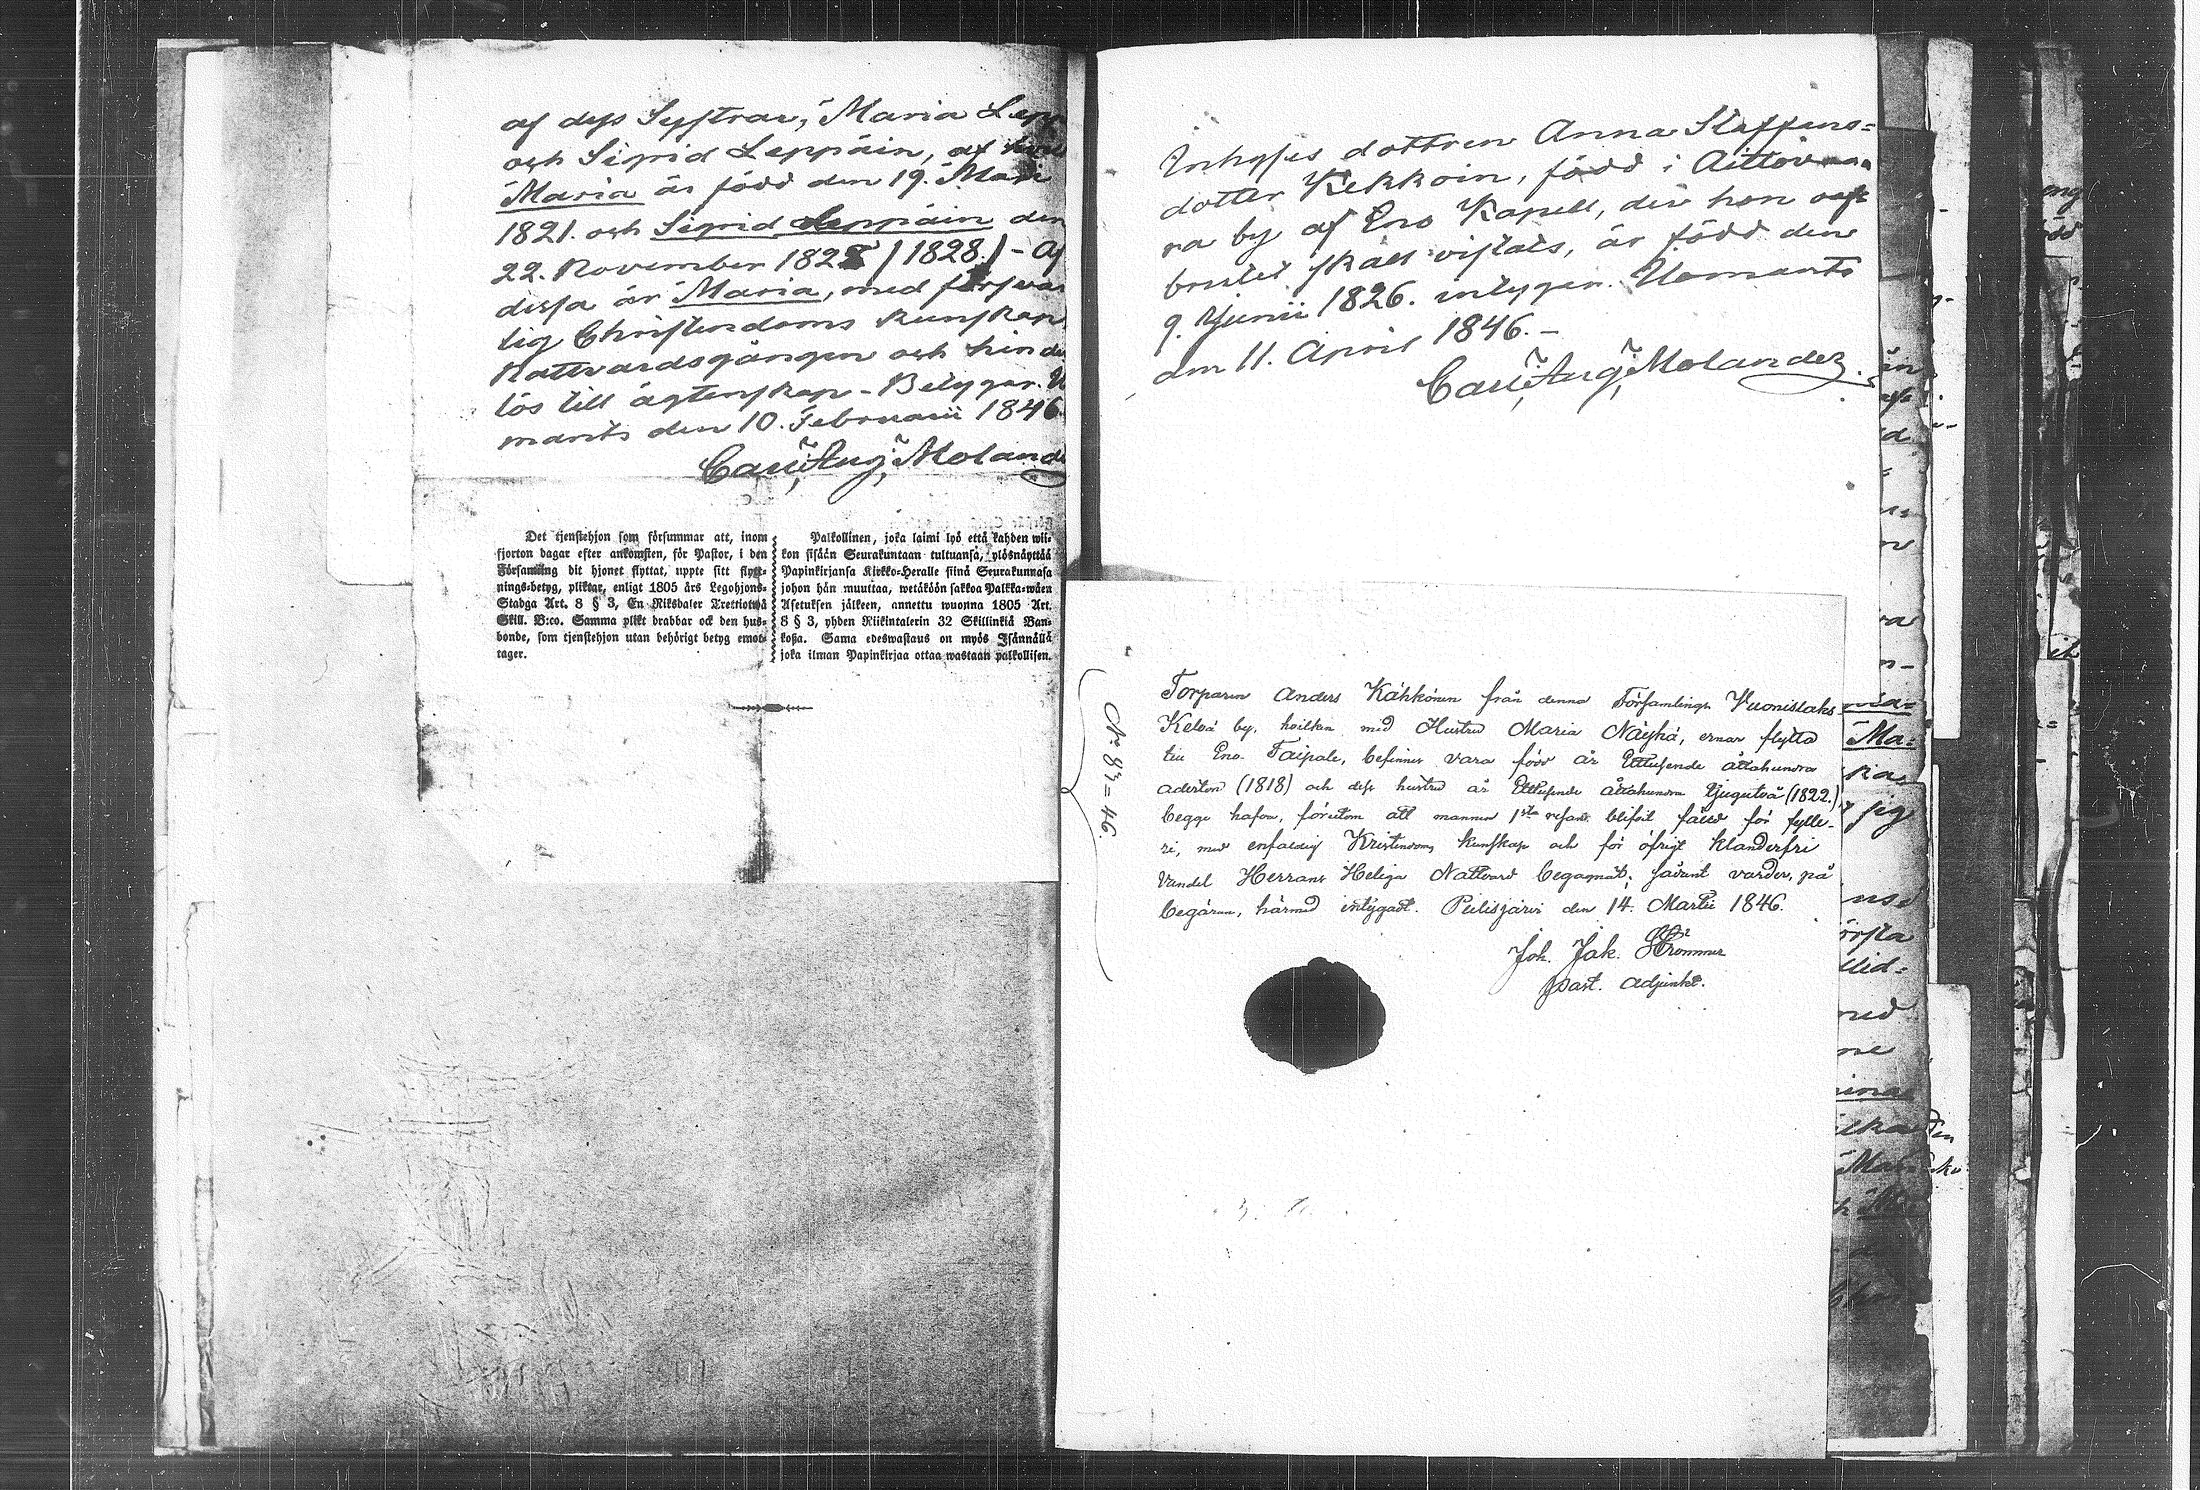 af dess Systrar, Maria Lepp
och Sigrid Leppäin, af
Maria är född den 19. Maii
1821. och Sigrid Leppäin den
22. November 1828 / 1828./ - Af
dessa är Maria, med försvar
lig Christendoms kunskap
Nattvardsgången och hinder
lös till ägtenskap - Betygar.
mants den 10. Februarii 1846
Carl Aug Moland
Det tjenstehjon som försummar att, inom
fjorton dagar efter ankomsten, för Pastor, i den
Församling dit hjonet flyttat, uppte sitt flytt-
nings-betyg, pliktar, enligt 1805 års Legohjons-
Stadga Art. 8 § 3, En Riksdaler Trettiotwå
Skill. B:co. Samma plikt drabbar ock den hus-
bonde, som tjenstehjon utan behörigt betyg emot-
tager.
Palkollinen, joka laimi lyö että kahden wii-
kon sisään Seurakuntaan tultuansa, ylösnäyttää
Papinkirjansa Kirkko-Heralle siinä Seurakunnasa
johon hän muuttaa, wetäköön sakkoa Palkka-wäen
Asetuksen jälkeen, annettu wuonna 1805 Art.
8 § 3, yhden Riikintalerin 32 Skillinkiä Ban-
kosa. Sama edeswastaus on myös Isännällä
joka ilman Papinkirjaa ottaa wastaan palkollisen.
Inhyses dottren Anna Staffens-
dotter Kekkoin, född i Aittovaa
ra by af Eno Kapell, der hon oaf
brutet skall vistats, är född den
9. Junii 1826. intygar. Ilomants
den 11. April 1846. -
Carl Aug Molander.
No 83=46.
Torparen Anders Kähkönen från denna Församlings Vuonislaks
Kelvä by, hvilken med Hustru Maria Näyhä, ernar flytta
till Eno Taipale, befinnes vara född år Ettusende åttahundra
aderton (1818) och dess hustru år Ettusende åttahundra tjugutvå (1822.)
begge hafva, förutom att mannen 1sta resan blifvit fälld för fylle-
ri, med enfaldig Kristendoms kunskap och för öfrigt klanderfri
vandel Herrans Heliga Nattvard begagnat; sådant varder, på
begäran, härmed intygadt. Pielisjärvi den 14. Martii 1846.
Joh. Jak. Strömmer
past. adjunkt.